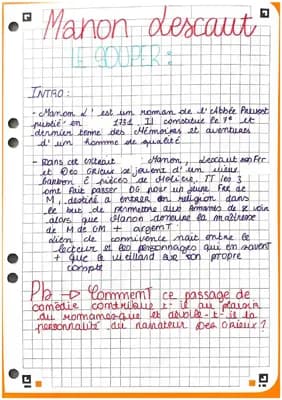 Manon Lescaut
LE SOUPER :
INTRO :
- Manon L' est un roman de l'Abbée Prévost
publié en 1731. Il constitue le 7e et
dernier tome des Mémoires et aventures
d'un homme de qualité
- Dans cet extrait Manon, Lescaut son Frr
et Des Grieux se jouent d'un vieux
barbon à pièces de Molière, TT les 3
ont fait passer DG pour un jeune Frr de
M, destiné à entrer en religion dans
le but de permettre aux Amants de se voir
alors que Manon devienne la maîtresse
de M de GM + argent.
Lien de connivence nait entre le
lecteur et les personnages qui en savent
+ que le vieillard sur son propre
compte
Pb → Comment ce passage de
comédie contribue-t-il au plaisir
du romanesque et dévoile-t-il la
personnalité du narrateur Des Grieux ?